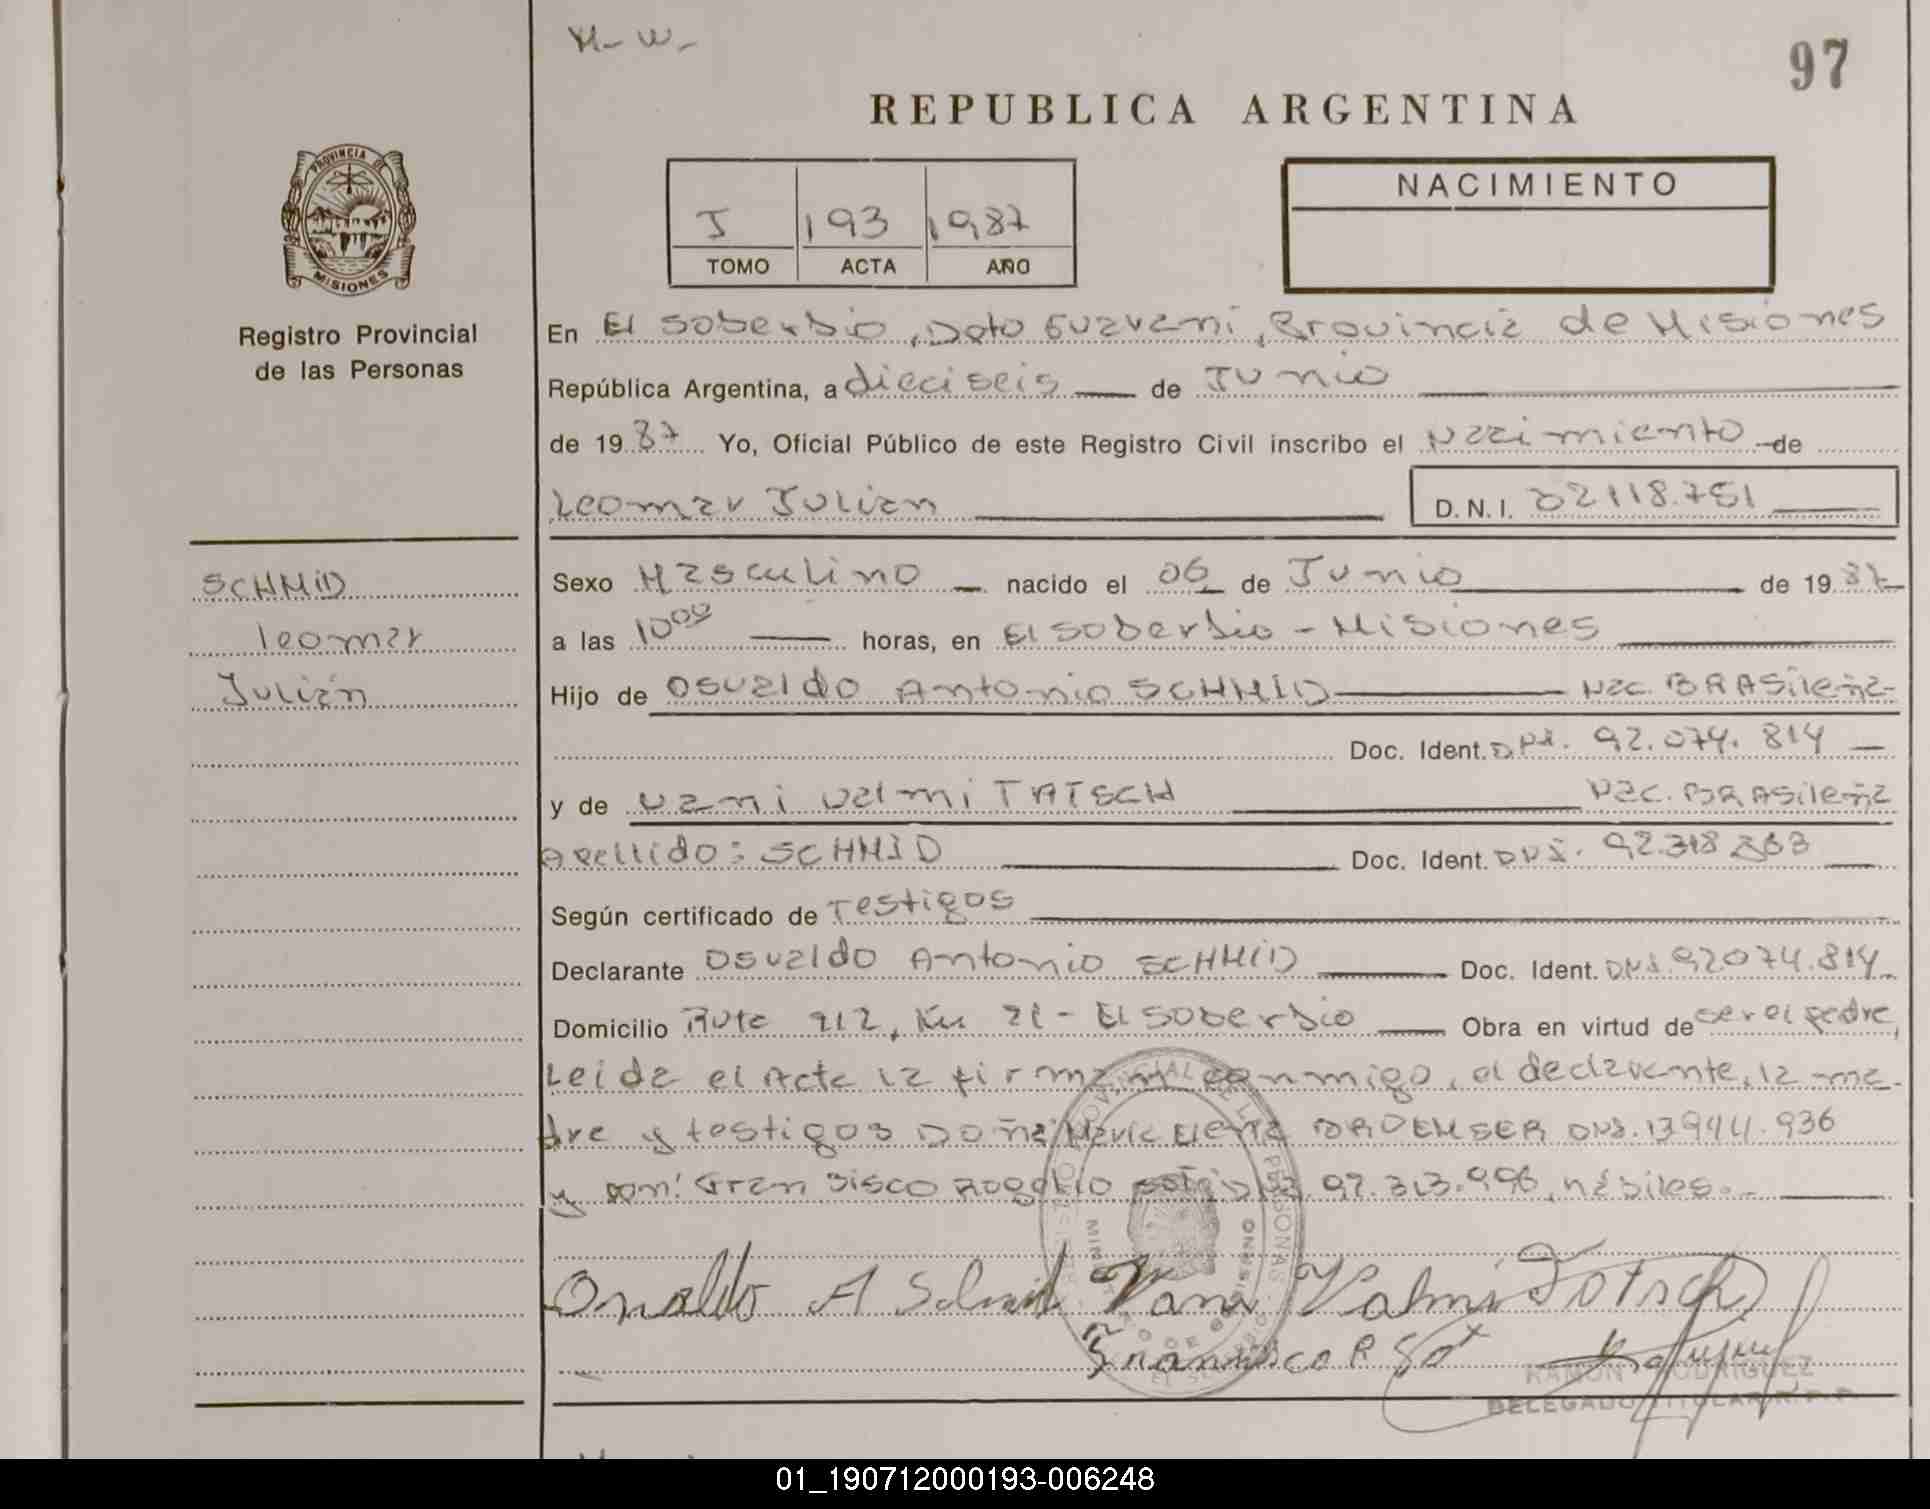 M- W-
97
REPUBLICA ARGENTINA
PROVINCIA DE
MISIONES
Registro Provincial
de las Personas
I 193 1987
TOMO ACTA AÑO
NACIMIENTO
En El Soberbio, Dpto Guarani, Provincia de Misiones
República Argentina, a dieciseis de Junio
de 1987 Yo, Oficial Público de este Registro Civil inscribo el Nacimiento de
Leomar Julian
D.N.I.
SCHMID
leomar
Julián
Sexo Masculino nacido el 06 de Junio de 1987
a las 10 00 horas, en El Soberbio - Misiones
Hijo de Osvaldo Antonio SCHMID Nac. BRASileña
Doc. Ident. DNI. 92.074.814
y de Nani Valmi TATSCH Nac. BRASileña
Apellido: SCHMID Doc. Ident. DNI.
Según certificado de Testigos
Declarante Osvaldo Antonio SCHMID Doc. Ident. DNI. 92074.814
Domicilio Ruta 212, Km 21 - El Soberbio Obra en virtud de ser el padre,
Leida el Acta la firman conmigo, el declarante, la ma-
dre y testigos Doña Maria Elena DNI. 13944.936
y don: Fran sisco Rogelio 92.313.996, hábiles.-
Osvaldo A Schmid Nani Valmi Tatsch
Francisco R
RAMON RODRIGUEZ
DELEGADO TITULAR R.P.P.
01_190712000193-006248